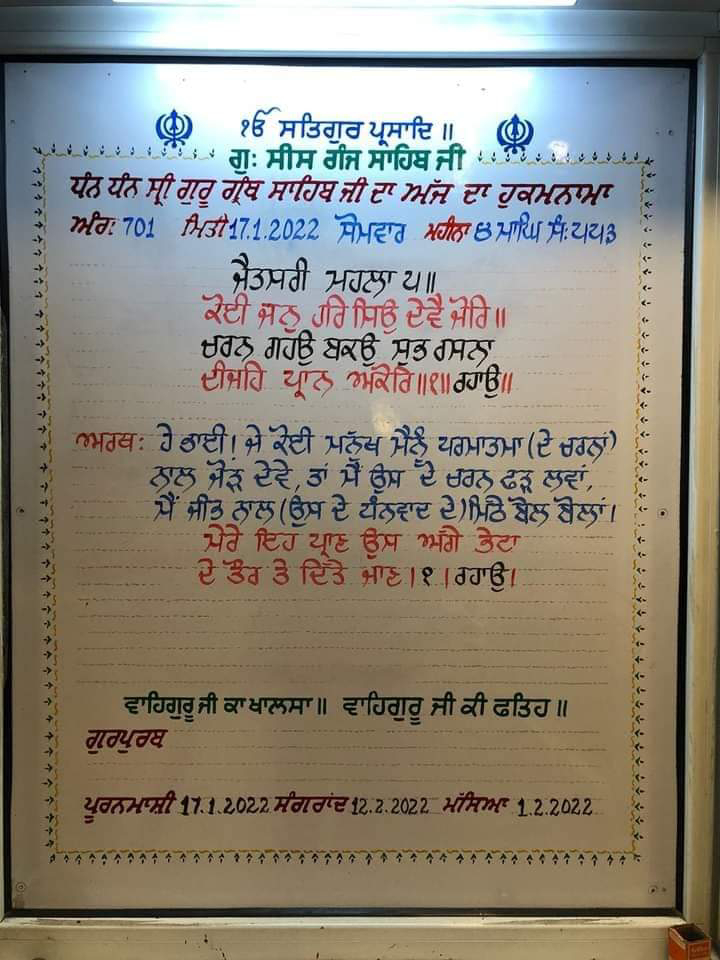 ੴ ਸਤਿਗੁਰ ਪ੍ਰਸਾਦਿ ॥
ਗੁ: ਸੀਸ ਗੰਜ ਸਾਹਿਬ ਜੀ
ਧੰਨ ਧੰਨ ਸ੍ਰੀ ਗੁਰੂ ਗ੍ਰੰਥ ਸਾਹਿਬ ਜੀ ਦਾ ਅੱਜ ਦਾ ਹੁਕਮਨਾਮਾ
ਅੰਗ: 701 ਮਿਤੀ 17.1.2022 ਸੋਮਵਾਰ ਮਹੀਨਾ ੪ ਮਾਘ ਸੰ: ੫੫੩
ਜੈਤਸਰੀ ਮਹਲਾ ੫॥
ਕੋਈ ਜਨੁ ਹਰਿ ਸਿਉ ਦੇਵੈ ਜੋਰਿ॥
ਚਰਨ ਗਹਉ ਬਕਉ ਸੁਭ ਰਸਨਾ
ਦੀਜਹਿ ਪ੍ਰਾਨ ਅਕੋਰਿ॥੧॥ ਰਹਾਉ॥
ਅਰਥ: ਹੇ ਭਾਈ! ਜੇ ਕੋਈ ਮਨੁੱਖ ਮੈਨੂੰ ਪਰਮਾਤਮਾ (ਦੇ ਚਰਨਾਂ)
ਨਾਲ ਜੋੜ ਦੇਵੇ, ਤਾਂ ਮੈਂ ਉਸ ਦੇ ਚਰਨ ਫੜ ਲਵਾਂ,
ਮੈਂ ਜੀਭ ਨਾਲ (ਉਸ ਦੇ ਧੰਨਵਾਦ ਦੇ) ਮਿਠੇ ਬੋਲ ਬੋਲਾਂ।
ਮੇਰੇ ਇਹ ਪ੍ਰਾਣ ਉਸ ਅੱਗੇ ਭੇਟਾ
ਦੇ ਤੌਰ ਤੇ ਦਿੱਤੇ ਜਾਣ।੧।ਰਹਾਉ।
ਵਾਹਿਗੁਰੂ ਜੀ ਕਾ ਖਾਲਸਾ॥ ਵਾਹਿਗੁਰੂ ਜੀ ਕੀ ਫਤਿਹ॥
ਗੁਰਪੁਰਬ
ਪੂਰਨਮਾਸ਼ੀ 17.1.2022 ਸੰਗਰਾਂਦ 12.2.2022 ਮੱਸਿਆ 1.2.2022